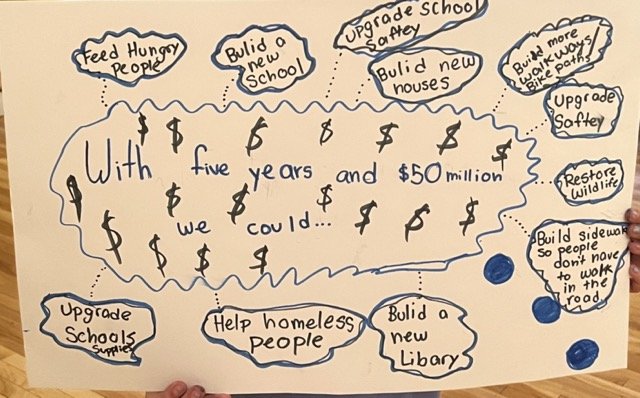 Feed Hungry
People
Bulid a
new
School
Upgrade School
Saftey
Bulid new
houses
Build more
walkways/
Bike paths
Upgrade
Saftey
$ $ $ $ $ $ $
With five years and $50 million
$ $ $ $
we could...
$ $ $
$ $ $ $
Restore
Wildlife
Build sidewalk
so people
don't have
to walk
in the
road
Upgrade
Schools
Supplies
Help homeless
people
Bulid a
new
Libary